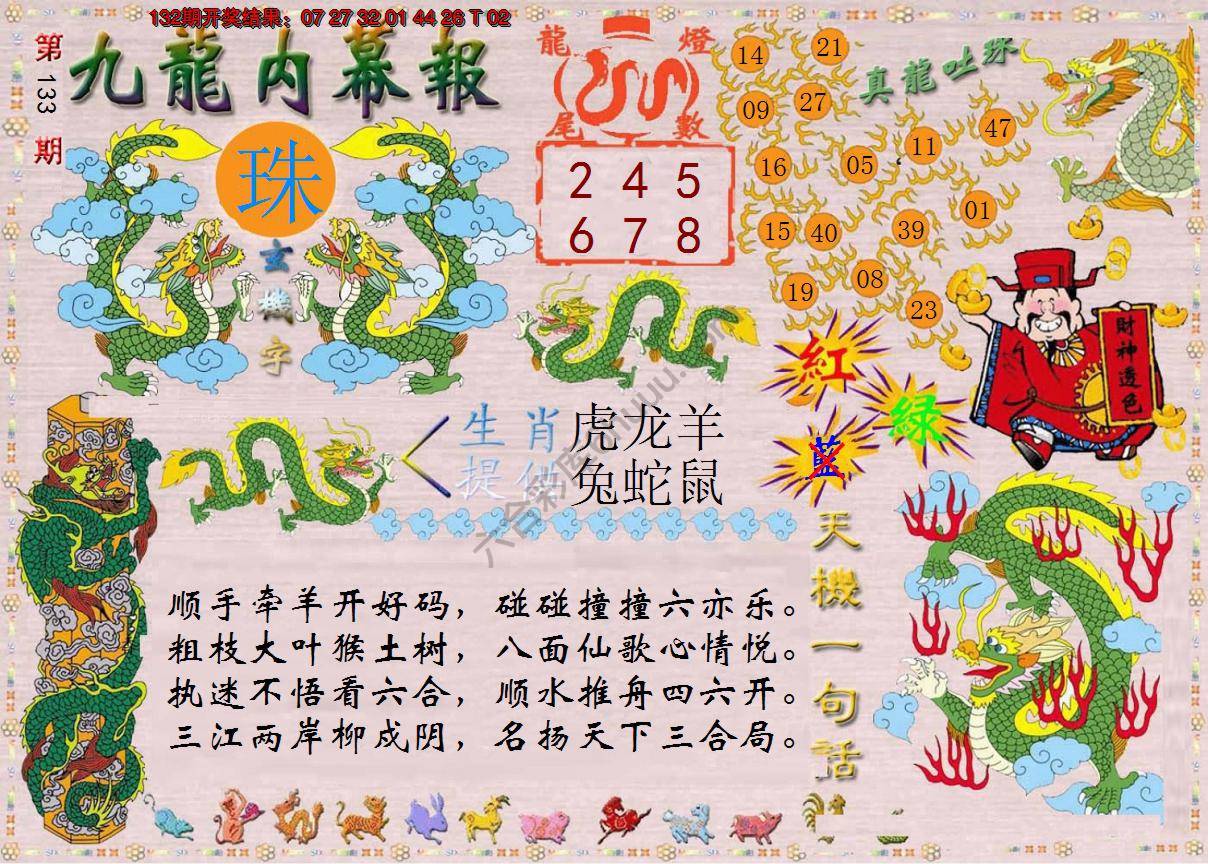 132期开奖结果：07 27 32 01 44 26 T 02
第133期
九龍内幕報
珠
玄機字
龍燈
尾數
2 4 5
6 7 8
真龍吐珠
14
21
09
27
16
05
11
47
15
40
39
01
19
08
23
財神透色
紅
綠
藍
生肖
提供
虎龙羊
兔蛇鼠
天機一句話
顺手牵羊开好码，碰碰撞撞六亦乐。
粗枝大叶猴土树，八面仙歌心情悦。
执迷不悟看六合，顺水推舟四六开。
三江两岸柳成阴，名扬天下三合局。